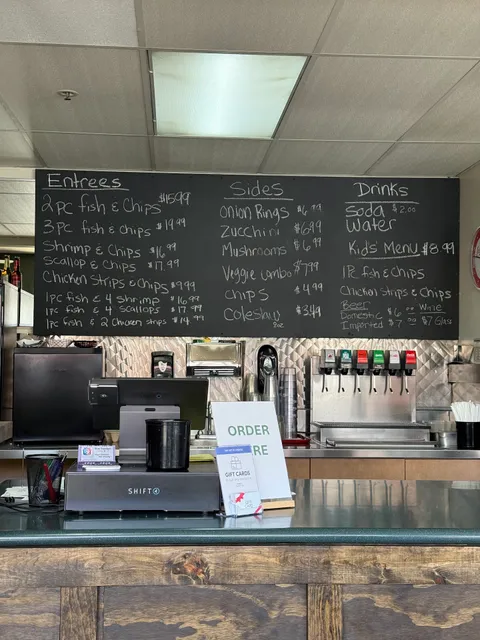 Entrees
2pc fish & Chips $15.99
3pc fish & Chips $19.99
Shrimp & Chips $16.99
Scallop & Chips $17.99
Chicken Strips & Chips $9.99
1pc fish & 4 Shrimp $16.99
1pc fish & 4 Scallops $17.99
1pc fish & 2 Chicken strips $14.99
Sides
Onion Rings $6.99
Zucchini $6.99
Mushrooms $6.99
Veggie Combo $7.99
Chips $4.99
Coleslaw $3.49
8oz
Drinks
Soda $2.00
Water
Kid's Menu $8.99
1pc fish & Chips
Chicken Strips & Chips
Beer
Domestic $6
Imported $7
Wine
$7 Glass
ORDER
GIFT CARDS
SHIFT4